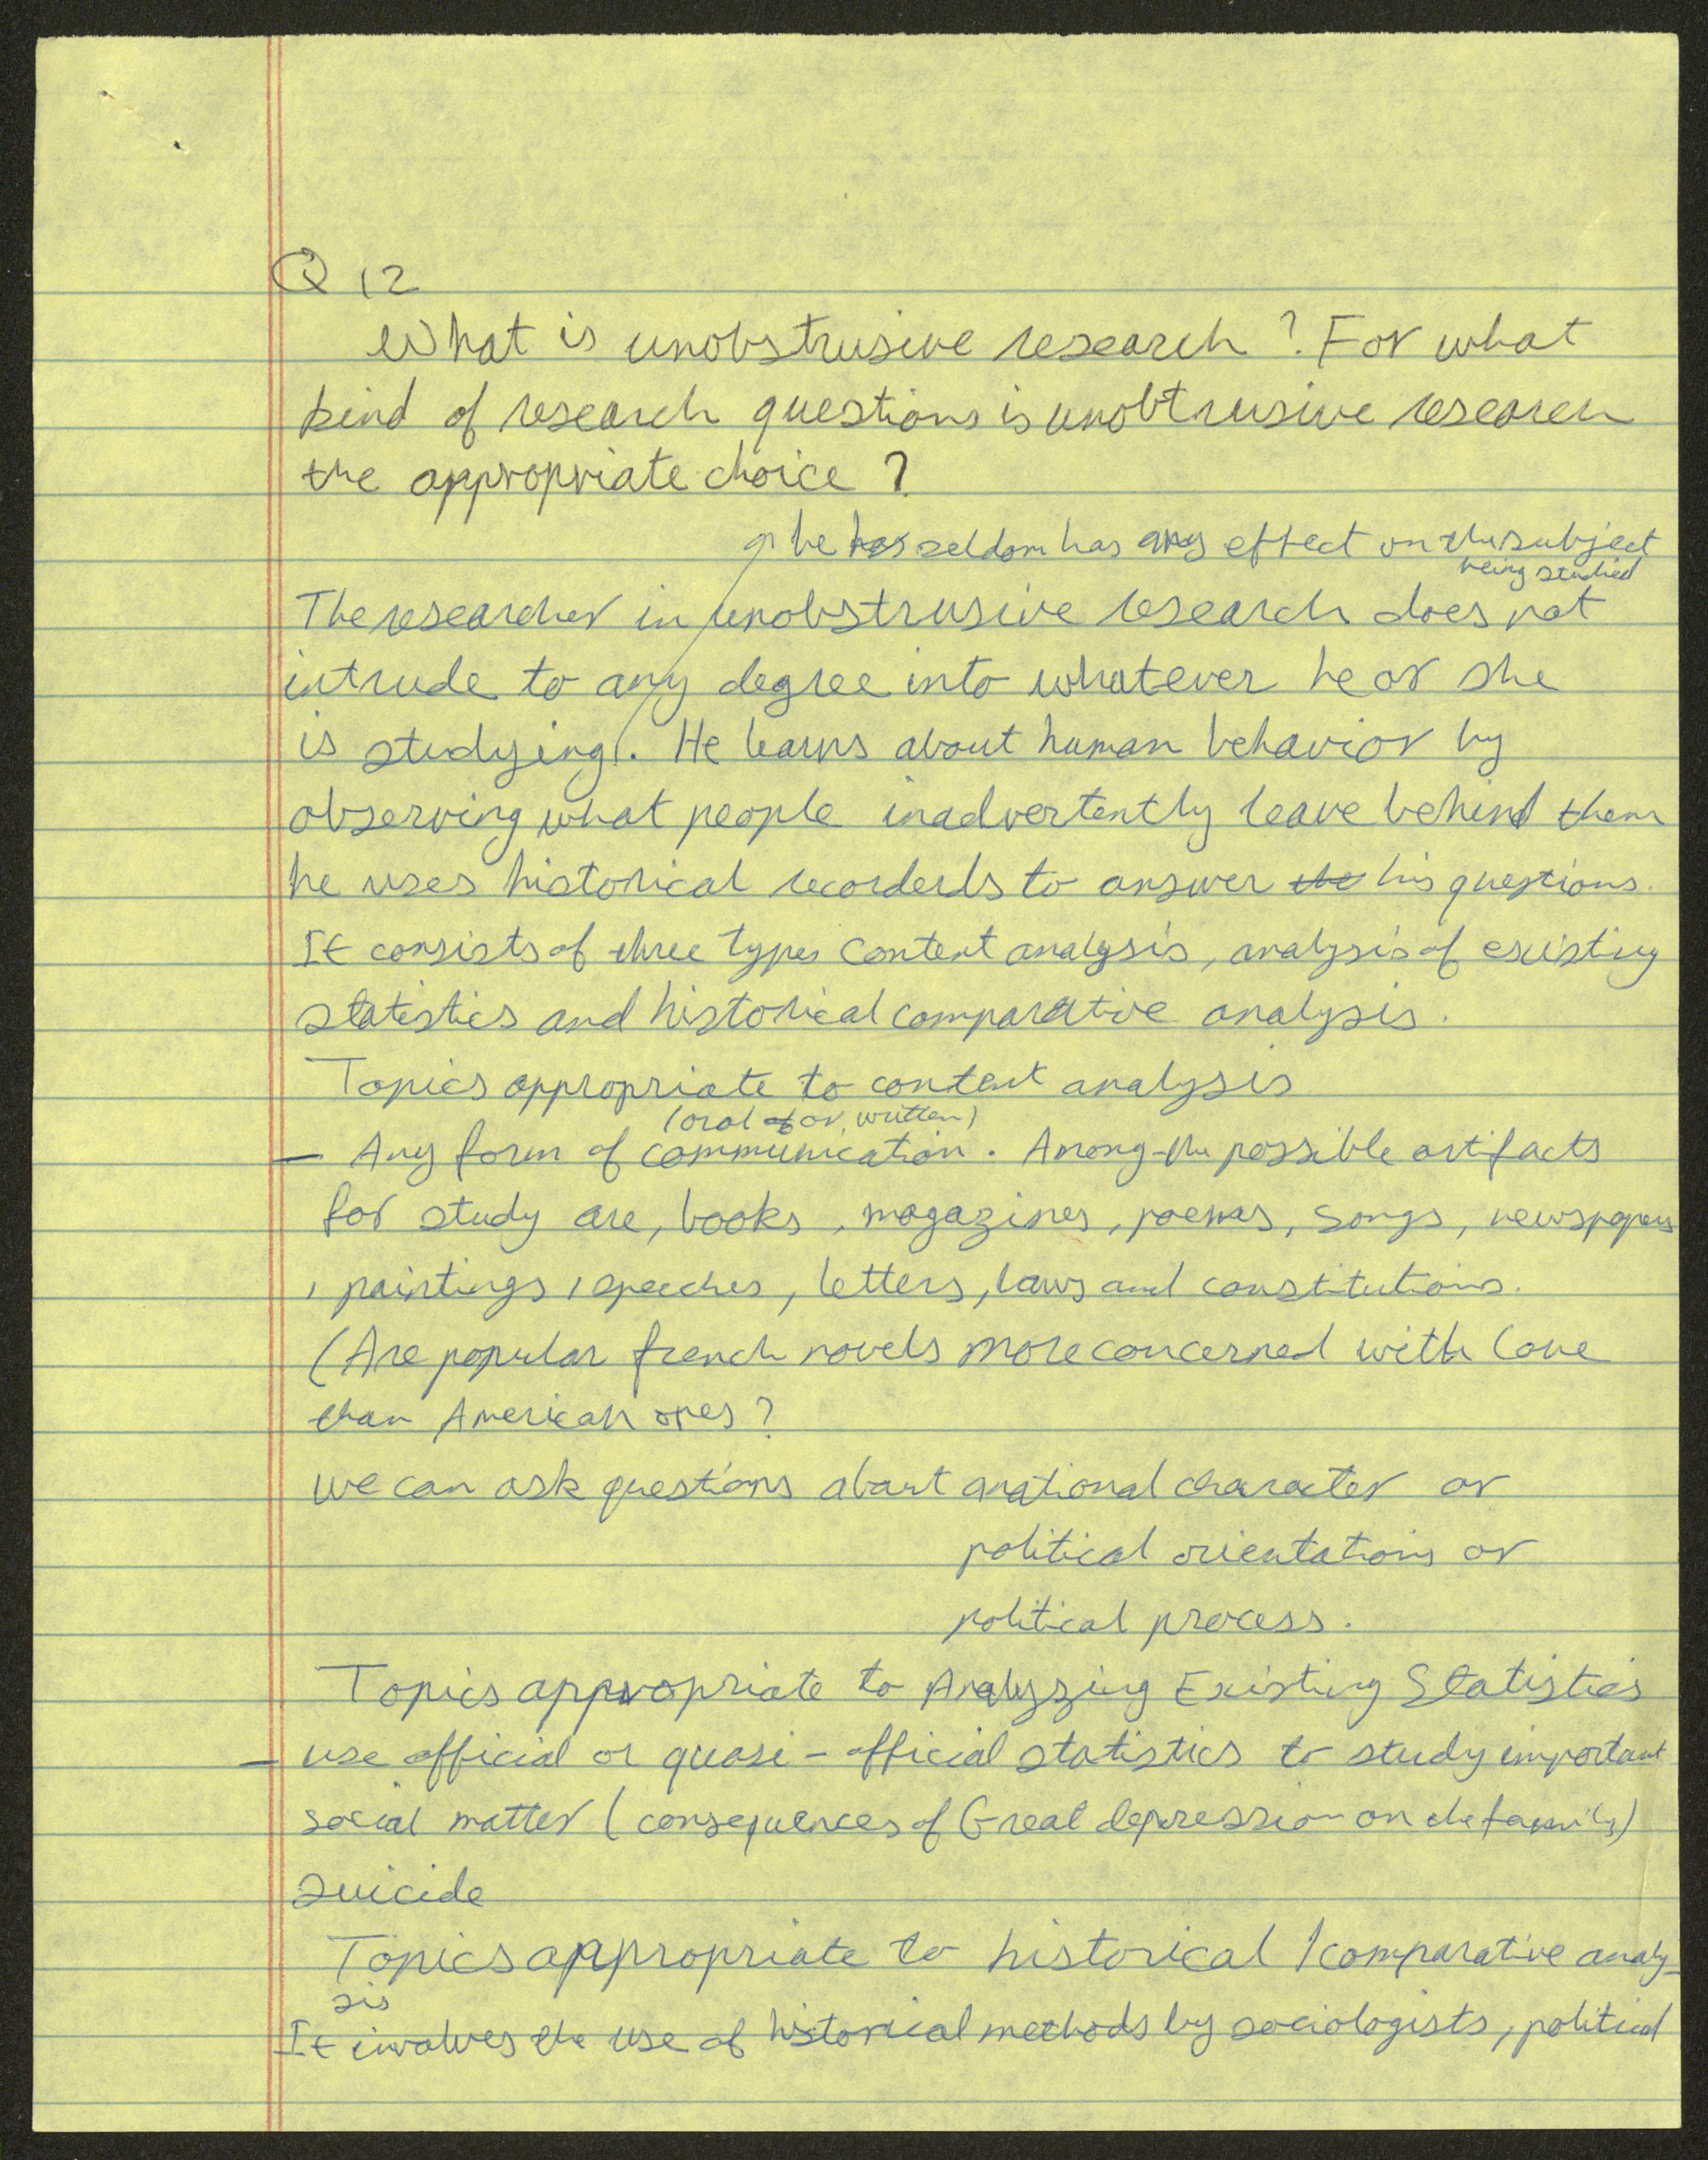 Q 12
What is unobstrusive research? For what
kind of research questions is unobtrusive research
the appropriate choice?
or he has seldom has any effect on the subject
being studied
The researcher in unobstrusive research does not
intrude to any degree into whatever he or she
is studying. He learns about human behavior by
observing what people inadvertently leave behind them
he uses historical recorderds to answer the his questions.
It consists of three types content analysis, analysis of existing
statistics and historical comparative analysis.
Topics appropriate to content analysis
(oral of or written)
— Any form of communication. Among the possible artifacts
for study are, books, magazines, poems, songs, newspapers
, paintings, speeches, letters, laws and constitutions.
(Are popular french novels more concerned with love
than American ones?
we can ask questions about anational character or
political orientations or
political process.
Topics appropriate to Analyzing Existing Statistics
— use official or quasi-official statistics to study important
social matter (consequences of Great depression on the family)
suicide
Topics appropriate to historical/comparative analy-
sis
It involves the use of historical methods by sociologists, political